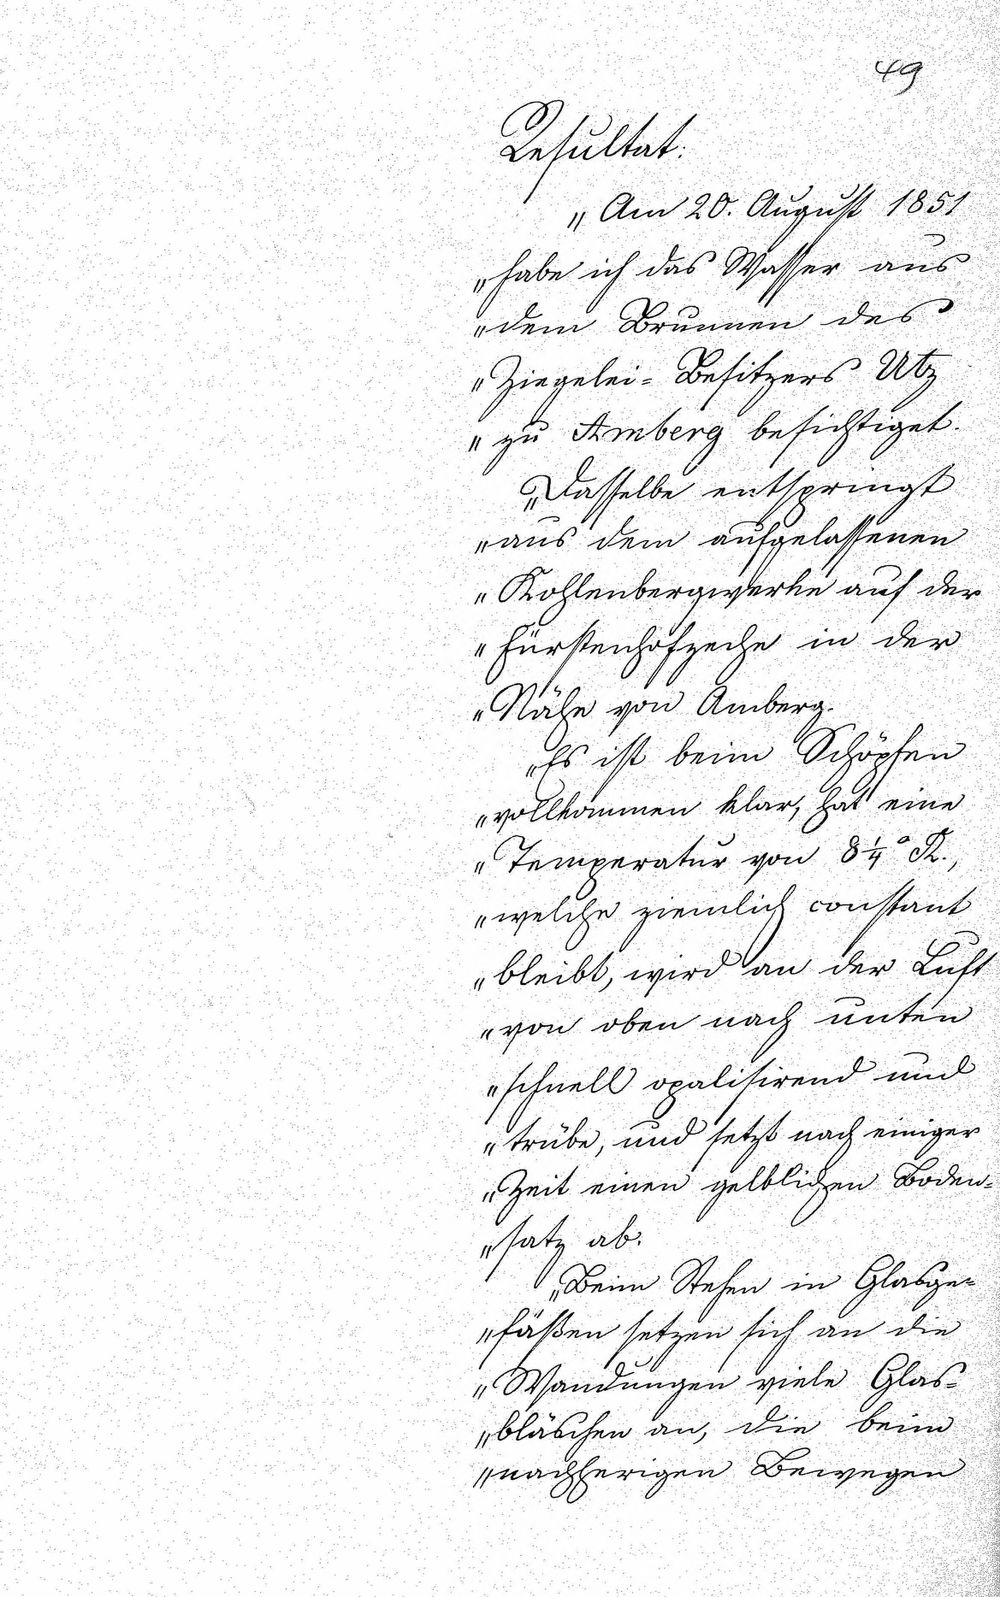 49
Resultat:
„ Am 20. August 1851
„habe ich das Wasser aus
„dem Brunnen des
„Ziegelei= Besitzers Utz
„ zu Amberg besichtiget.
„Dasselbe entspringt
„aus dem aufgelassenen
„Kohlenbergwerke auf der
„Fürstenhofzeche in der
„Nähe von Amberg.
„Es ist beim Schöpfen
„vollkommen klar, hat eine
„Temperatur von 8¼° R.,
„welche ziemlich constant
„bleibt, wird an der Luft
„von oben nach unten
„schnell opalisirend und
„trübe, und setzt nach einiger
„Zeit einen gelblichen Boden=
„satz ab.
„Beim Stehen in Glasge=
„fäßen setzen sich an die
„Wandungen viele Glas=
„bläschen an, die beim
„nachherigen Bewegen